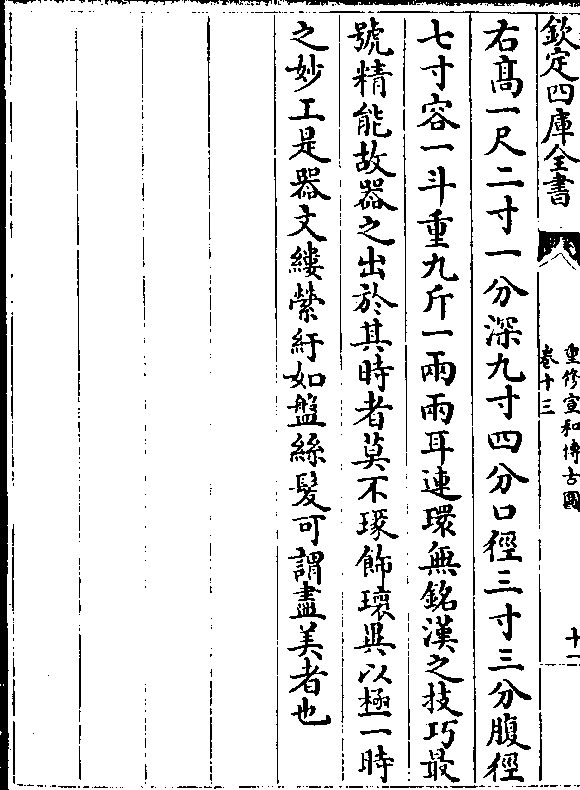 欽定四庫全書
重修宣和博古圖
卷十三
十二
右髙一尺二寸一分深九寸四分口徑三寸三分腹徑
七寸容一斗重九斤一兩兩耳連環無銘漢之技巧最
號精能故器之出於其時者莫不瑑飾瓌異以極一時
之妙工是器文縷縈紆如盤絲髪可謂盡美者也